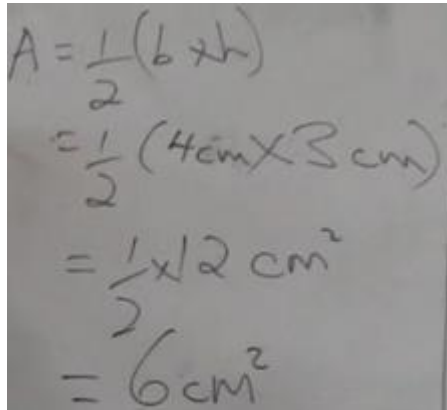 A = 1/2 (b × h)
= 1/2 (4cm × 3 cm)
= 1/2 × 12 cm²
= 6 cm²